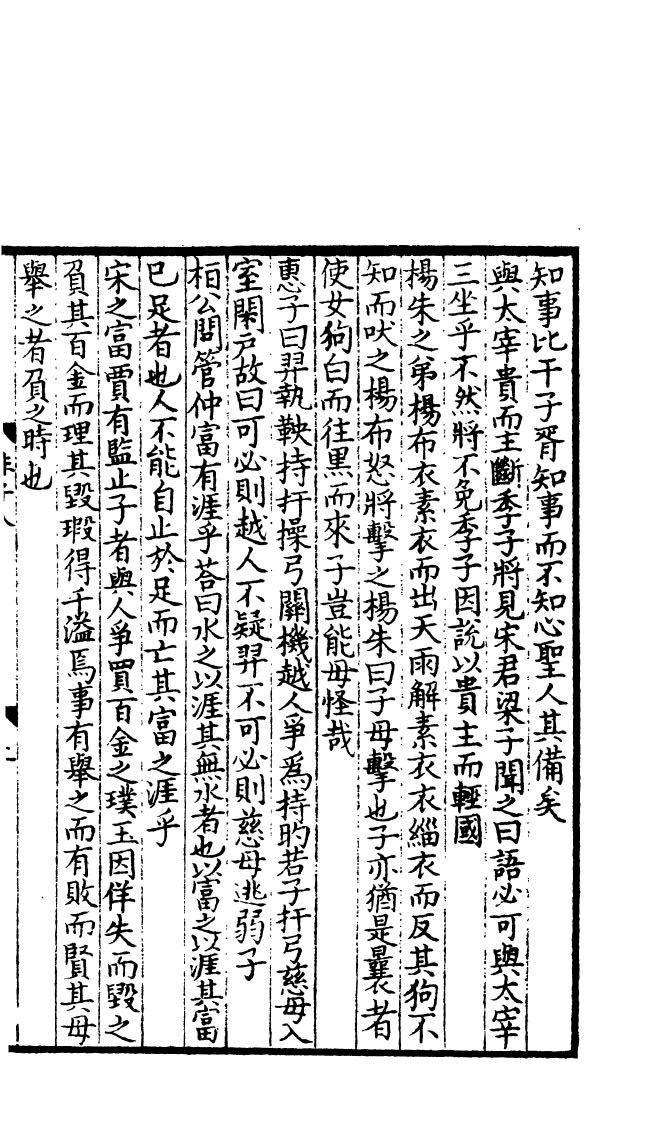 知事比干子胥知事而不知心聖人其備矣
與太宰貴而主斷季子將見宋君梁子聞之曰語必可與太宰
三坐乎不然將不免季子因說以貴主而輕國
楊朱之弟楊布衣素衣而出天雨解素衣衣緇衣而反其狗不
知而吠之楊布怒將擊之楊朱曰子毋擊也子亦猶是曩者
使女狗白而往黑而來子豈能毋怪哉
惠子曰羿執鞅持扞操弓關機越人爭爲持旳若子扞弓慈母入
室閑戸故曰可必則越人不疑羿不可必則慈母逃弱子
桓公問管仲富有涯乎荅曰水之以涯其無水者也以富之以涯其富
已足者也人不能自止於足而亡其富之涯乎
宋之富賈有監止子者與人爭買百金之璞玉因佯失而毀之
負其百金而理其毀瑕得千溢焉事有舉之而有敗而賢其毋
舉之者負之時也